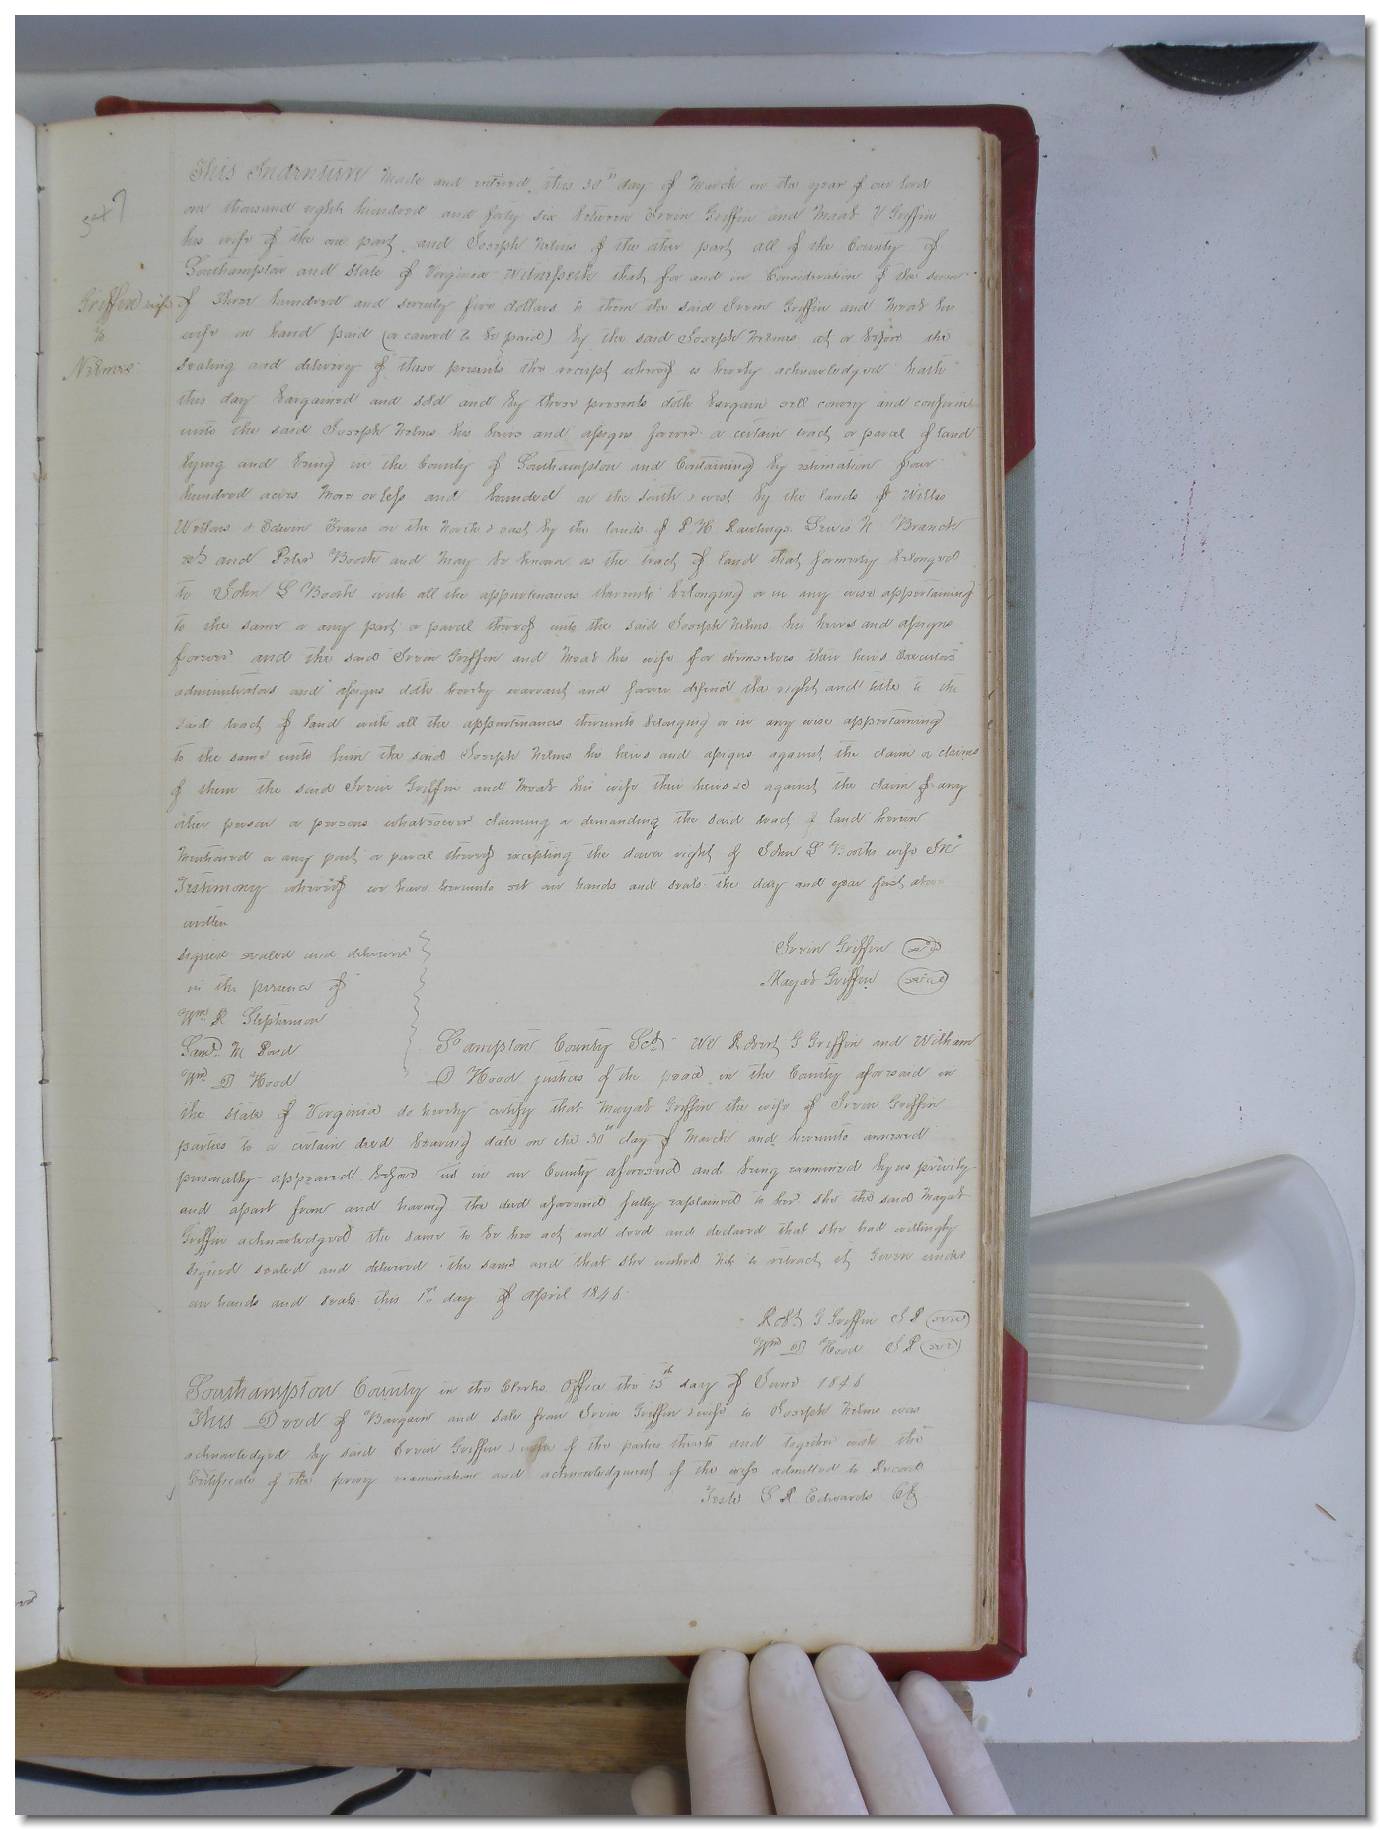 347
This Indenture Made and entered this 30th day of March in the year of our lord
one thousand eight hundred and forty six between Irvin Griffin and Griffin
his wife of the one part and Joseph Nelms of the other part all of the County of
Southampton and State of Virginia Witnesseth that for and in Consideration of the sum
Griffin & wife
to
Nelms
of three hundred and seventy five dollars to them the said Irvin Griffin and his
wife in hand paid (or caused to be paid) by the said Joseph Nelms at or before the
sealing and delivery of these presents the receipt whereof is hereby acknowledged hath
this day bargained and sold and by these presents doth bargain sell convey and confirm
unto the said Joseph Nelms his heirs and assigns forever a certain tract or parcel of land
lying and being in the County of Southampton and Containing by estimation four
hundred acres More or less and bounded on the South & west by the lands of Willis
& Edwin Travis on the North & east by the lands of P H Rawlings Lewis N Branch
and Peter Booth and May be known as the tract of land that formerly belonged
to John L Booth with all the appurtenances thereunto belonging or in any wise appertaining
to the same or any part or parcel thereof unto the said Joseph Nelms his heirs and assigns
forever and the said Irvin Griffin and his wife for themselves their heirs Executors
administrators and assigns doth hereby warrant and forever defend the right and title to the
said tract of land with all the appurtenances thereunto belonging or in any wise appertaining
to the same unto him the said Joseph Nelms his heirs and assigns against the claim or claims
of them the said Irvin Griffin and his wife their heirs &c against the claim of any
other person or persons whatsoever claiming or demanding the said tract of land herein
Mentioned or any part or parcel thereof excepting the dower right of John L Booths wife In
Testimony whereof we have hereunto set our hands and seals the day and year first above
written
signed sealed and delivered
in the presence of
Wm R Stephenson
Saml M Pond
Wm D Hood
Irvin Griffin (seal)
Mayab Griffin (seal)
S°ampton County Sct We Robert G Griffin and William
D Hood justices of the peace in the County aforesaid in
the State of Virginia do hereby certify that Mayab Griffin the wife of Irvin Griffin
parties to a certain deed bearing date on the 30th day of March and hereunto annexed
personally appeared before us in our County aforesaid and being examined by us privily
and apart from and having the deed aforesaid fully explained to her she the said Mayab
Griffin acknowledged the same to be her act and deed and declared that she had willingly
signed sealed and delivered the same and that she wished not to retract it Given under
our hands and seals this 1st day of April 1846
Robt G Griffin J P (seal)
Wm D Hood J P (seal)
Southampton County in the Clerks Office the 15th day of June 1846
This Deed of Bargain and sale from Irvin Griffin & wife to Joseph Nelms was
acknowledged by said Irvin Griffin & wife of the parties thereto and together with the
Certificate of the privy examination and acknowledgment of the wife admitted to Record
Teste L R Edwards Clk